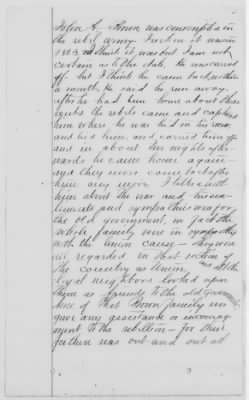 John A. Bown was conscripted in
the rebel army. I reckon it was in
1863 I think it was, but I am not
certain as to the date. He was carried
off but I think he came back within
a month. He said he run away.
after he had been home about three
weeks the rebels came and captured
him where he was hid in his house
and tied him and carried him off
and in about two nights after-
wards he came home again—
and they never came back after
him any more. I talked with
him about the war and his sen-
timents and sympathies were for
the old government, in fact the
whole family were in sympathy
with the union cause— they were
all regarded in that section of
the country as Union, and all the
loyal neighbors looked upon
them as friends to the old Govern
None of that Bown family ever
gave any assistance or encourage
ment to the rebellion— for their
father was out and out all